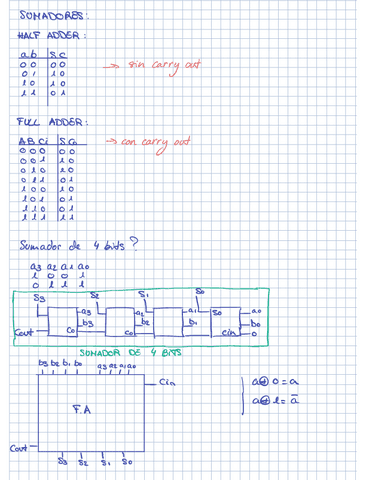 SUMADORES:
HALF ADDER:
a b | S C
0 0 | 0 0
0 1 | 1 0 → sin carry out
1 0 | 1 0
1 1 | 0 1
FULL ADDER:
A B Ci | S Co → con carry out
0 0 0 | 0 0
0 0 1 | 1 0
0 1 0 | 1 0
0 1 1 | 0 1
1 0 0 | 1 0
1 0 1 | 0 1
1 1 0 | 0 1
1 1 1 | 1 1
Sumador de 4 bits?
a3 a2 a1 a0
1 0 0 1
0 1 1 1
S3 S2 S1 S0
a3 a2 a1 S0 a0
b3 b2 b1 b0
Cout Co Co Cin 0
SUMADOR DE 4 BITS
b3 b2 b1 b0 a3 a2 a1 a0
Cin a⊕0=a
F.A a⊕1=a̅
Cout
S3 S2 S1 S0